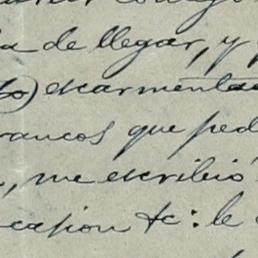 de llegar, y
escarmenta
francos que ped
, me escribió
casion &c: le